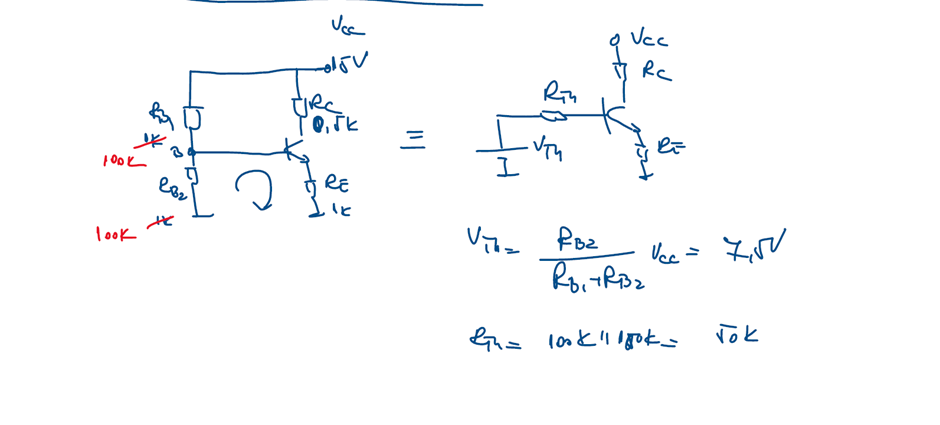 Vcc
15V
RB1
1K
100K
B
RC
0,5K
RB2
1K
100K
RE
1K
≡
Vcc
RC
RTh
VTh
RE
VTh = RB2 / (RB1 + RB2) Vcc = 7,5V
RTh = 100K || 100K = 50K